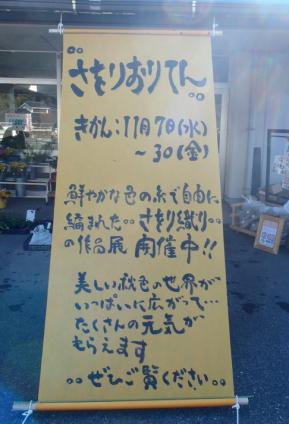 さをりおりてん
きかん:11月7日(水)
~30(金)
鮮やかな色の糸で自由に
編まれた○○さをり織り○○
の作品展 開催中!!
美しい秋色の世界が
いっぱいに広がって…
たくさんの元気が
もらえます
○○ぜひご覧ください○○